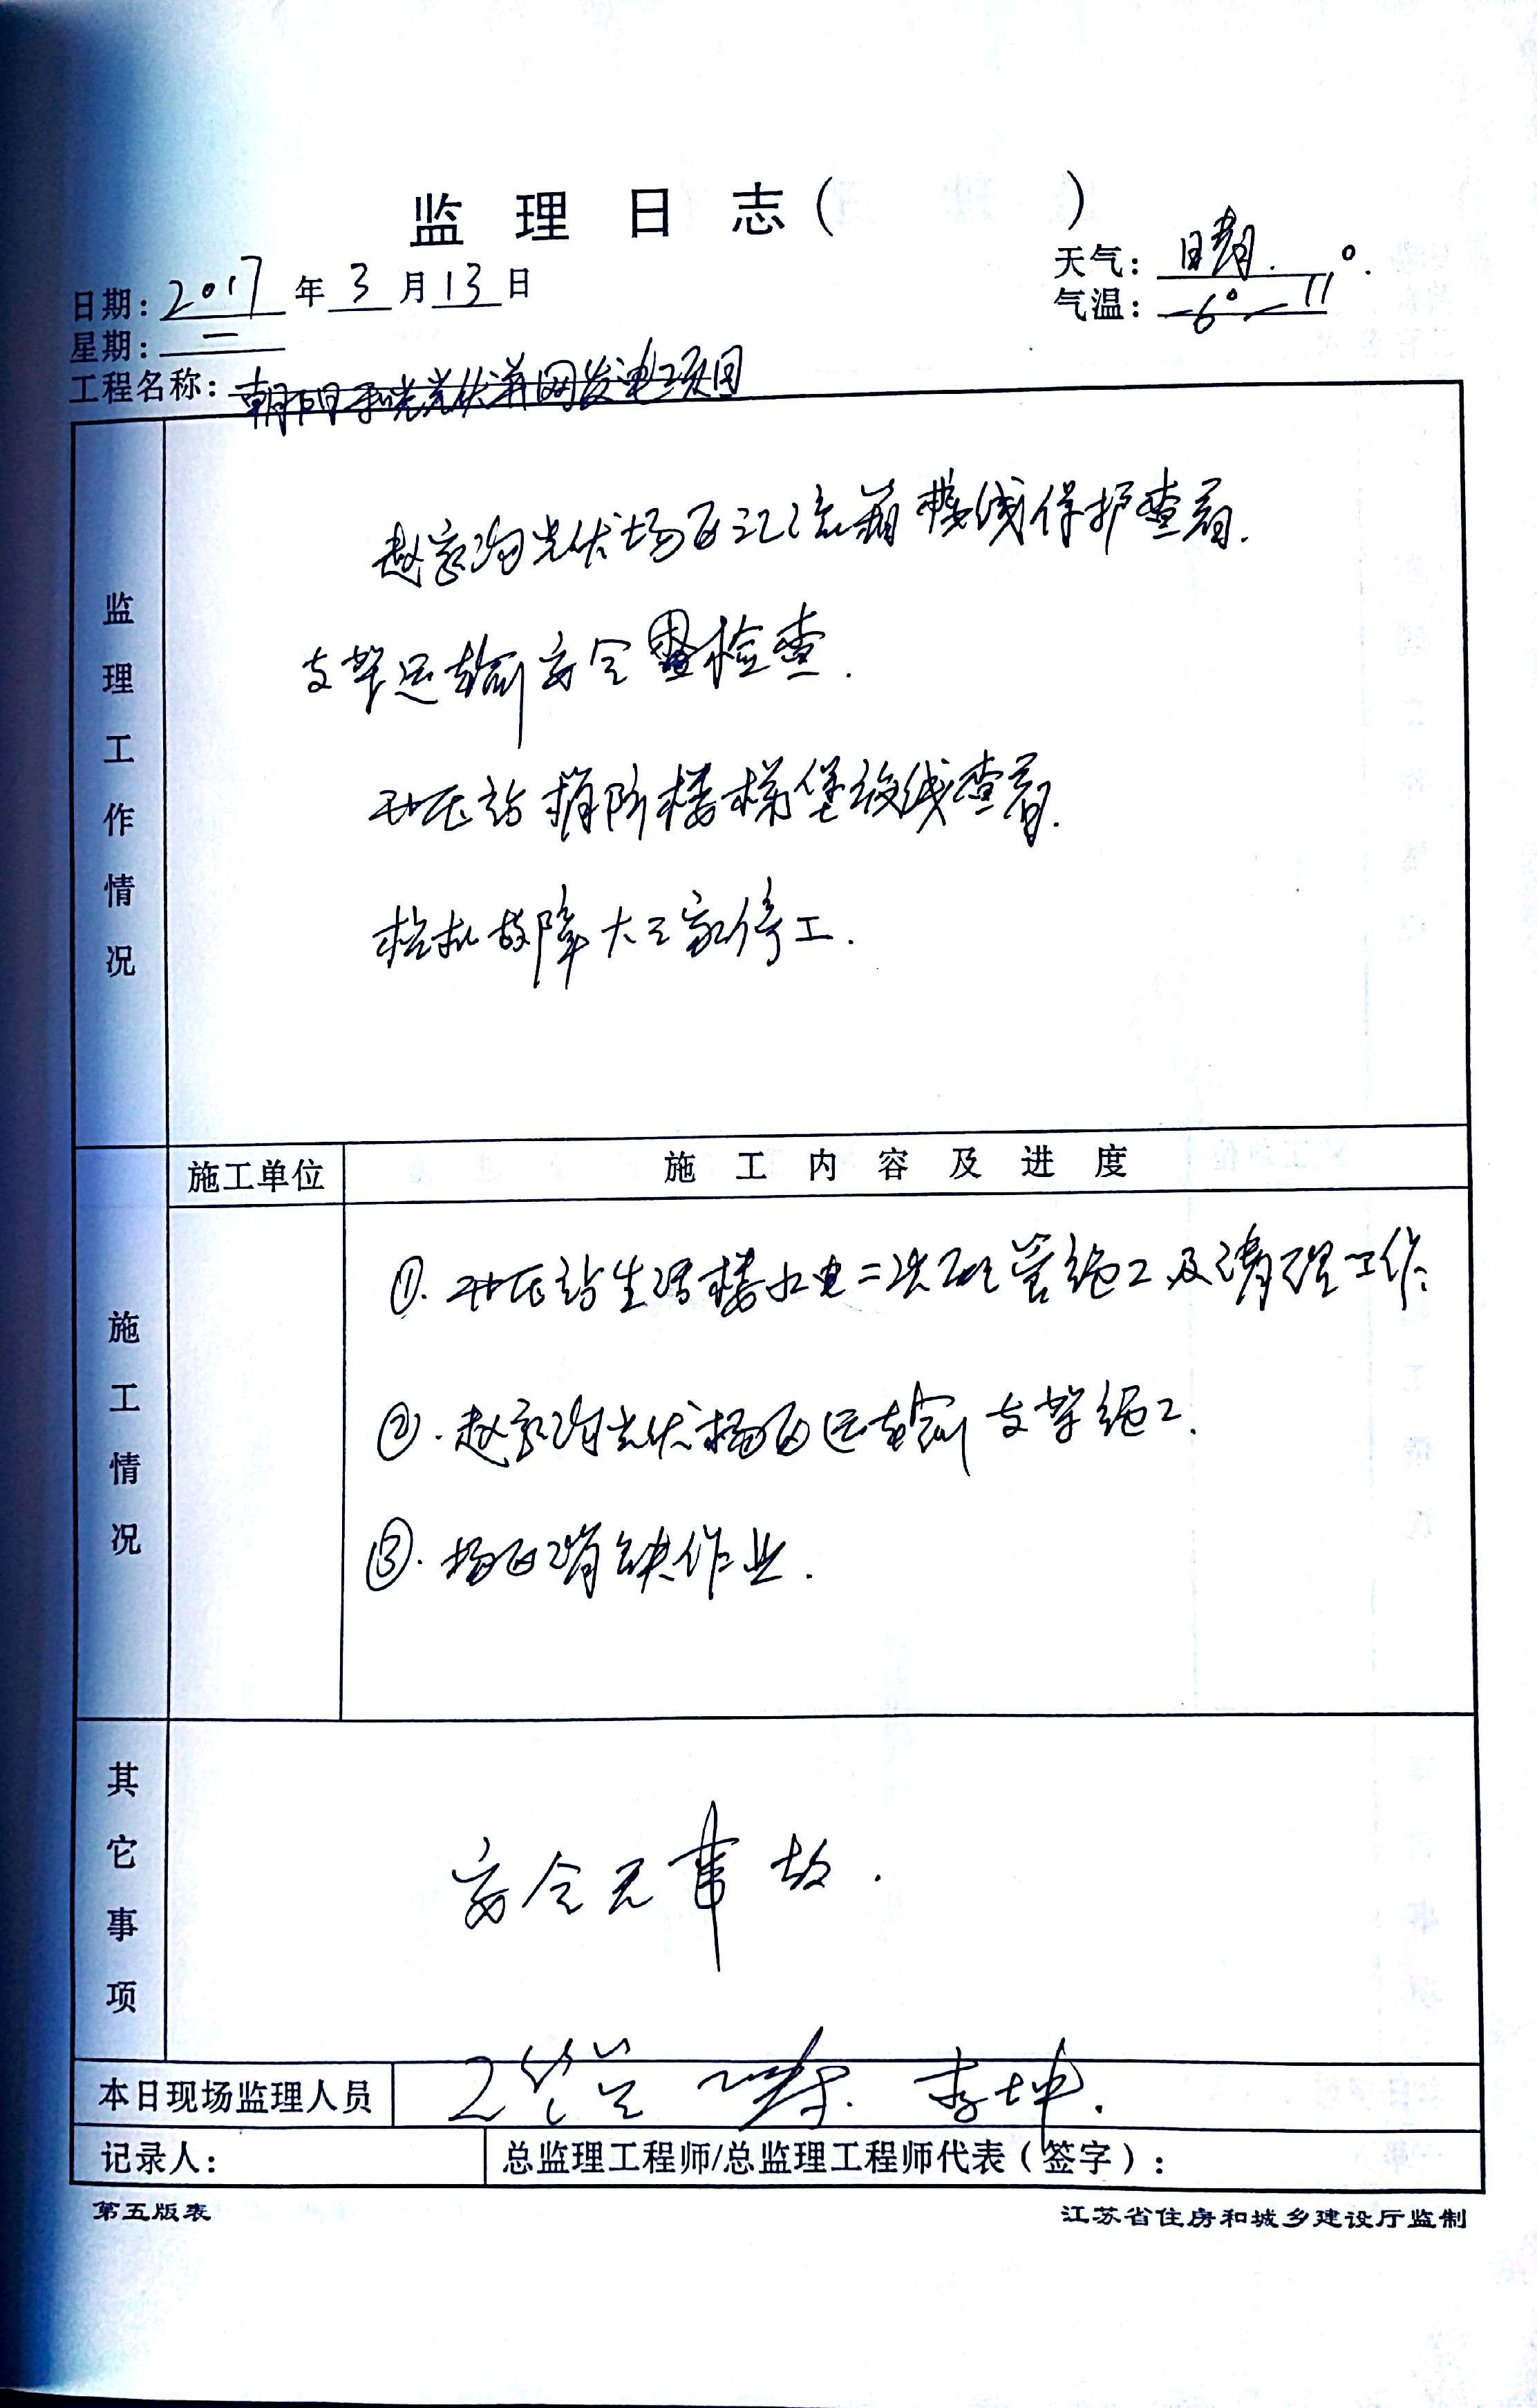 监理日志( )
日期:2017年3月13日
天气:晴.
星期:二
气温:-6°—11°.
工程名称:朝阳和光光伏并网发电项目
监理工作情况
赵家沟光伏场区汇流箱接线保护查看.
支架运输安全检查.
升压站消防楼梯垡放线查看.
桩机故障大三家停工.
施工单位
施工内容及进度
施工情况
①.升压站生活楼水电二次配管施工及清理工作
②.赵家沟光伏场区运输支架施工.
③.场区消缺作业.
其它事项
安全无事故.
本日现场监理人员
李坤.
记录人:
总监理工程师/总监理工程师代表(签字):
第五版表
江苏省住房和城乡建设厅监制